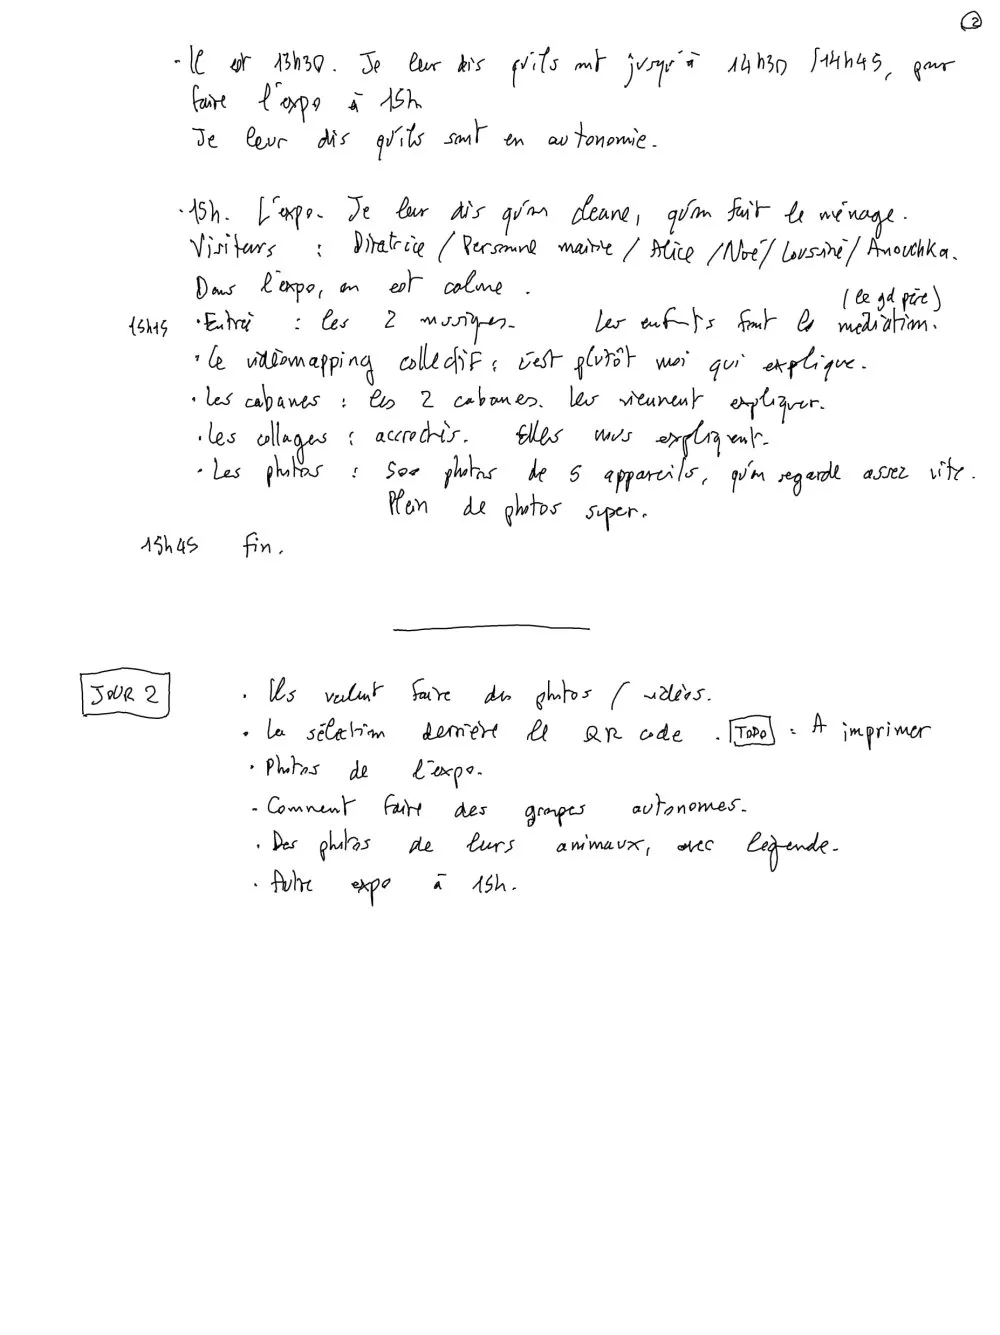 2
· Il est 13h30. Je leur dis qu'ils ont jusqu'à 14h30 / 14h45, pour
faire l'expo à 15h
Je leur dis qu'ils sont en autonomie.
· 15h. L'expo. Je leur dis qu'on cleane, qu'on fait le ménage.
Visiteurs : Directrice / Personne mairie / Alice / Noé / Loussiné / Anouchka.
Dans l'expo, on est calme.
(le gd père)
15h15 · Entrée : les 2 musiques. Les enfants font la médiation.
· Le vidéomapping collectif : c'est plutôt moi qui explique.
· Les cabanes : les 2 cabanes. Les viennent expliquer.
· Les collages : accrochés. Elles nous expliquent.
· Les photos : 500 photos de 5 appareils, qu'on regarde assez vite.
Plein de photos super.
15h45 fin.
JOUR 2 · Ils veulent faire des photos / vidéos.
· La sélection derrière le QR code. TODO : A imprimer
· Photos de l'expo.
· Comment faire des groupes autonomes.
· Des photos de leurs animaux, avec légende.
· Autre expo à 15h.